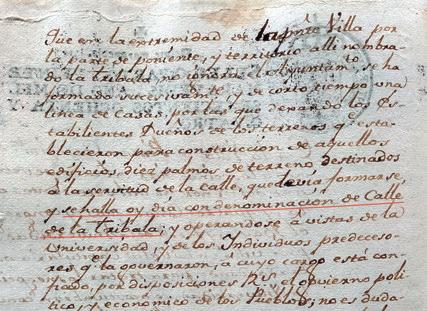 Que en la extremidad de la pñte Villa por
la parte de poniente, y territorio alli nombra-
do la Tribala, no ignora el Ayuntamto se ha
formado succesivamte y de corto tiempo una
linea de Casas, por las que dexando los Es-
tabilientes Dueños de los terrenos qe esta-
blecieron para construccion de aquellos
edificios, diez palmos de terreno destinados
à la servitud de la calle, que devia formarse,
y se halla oy dia con denominacion de Calle
de la Tribala; y operandose à vistas de la
Universidad, y de los Individuos predeceso-
res qe la governaron, à cuyo cargo está con-
fiado, por disposiciones Rs el govierno poli-
tico, y economico de los Pueblos; no es duda-